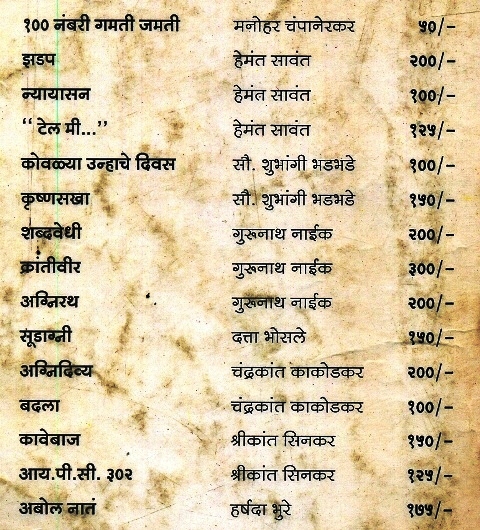 १०० नंबरी गमती जमती मनोहर चंपानेरकर ५०/-
झडप हेमंत सावंत २००/-
न्यायासन हेमंत सावंत १००/-
“ टेल मी...’’ हेमंत सावंत १२५/-
कोवळ्या उन्हाचे दिवस सौ. शुभांगी भडभडे १००/-
कृष्णसखा सौ. शुभांगी भडभडे १५०/-
शब्दवेधी गुरूनाथ नाईक २००/-
क्रांतीवीर गुरूनाथ नाईक ३००/-
अग्निरथ गुरूनाथ नाईक २००/-
सूडाग्नी दत्ता भोसले १५०/-
अग्निदिव्य चंद्रकांत काकोडकर २००/-
बदला चंद्रकांत काकोडकर १००/-
कावेबाज श्रीकांत सिनकर १५०/-
आय.पी.सी. ३०२ श्रीकांत सिनकर १२५/-
अबोल नातं हर्षदा भुरे १७५/-